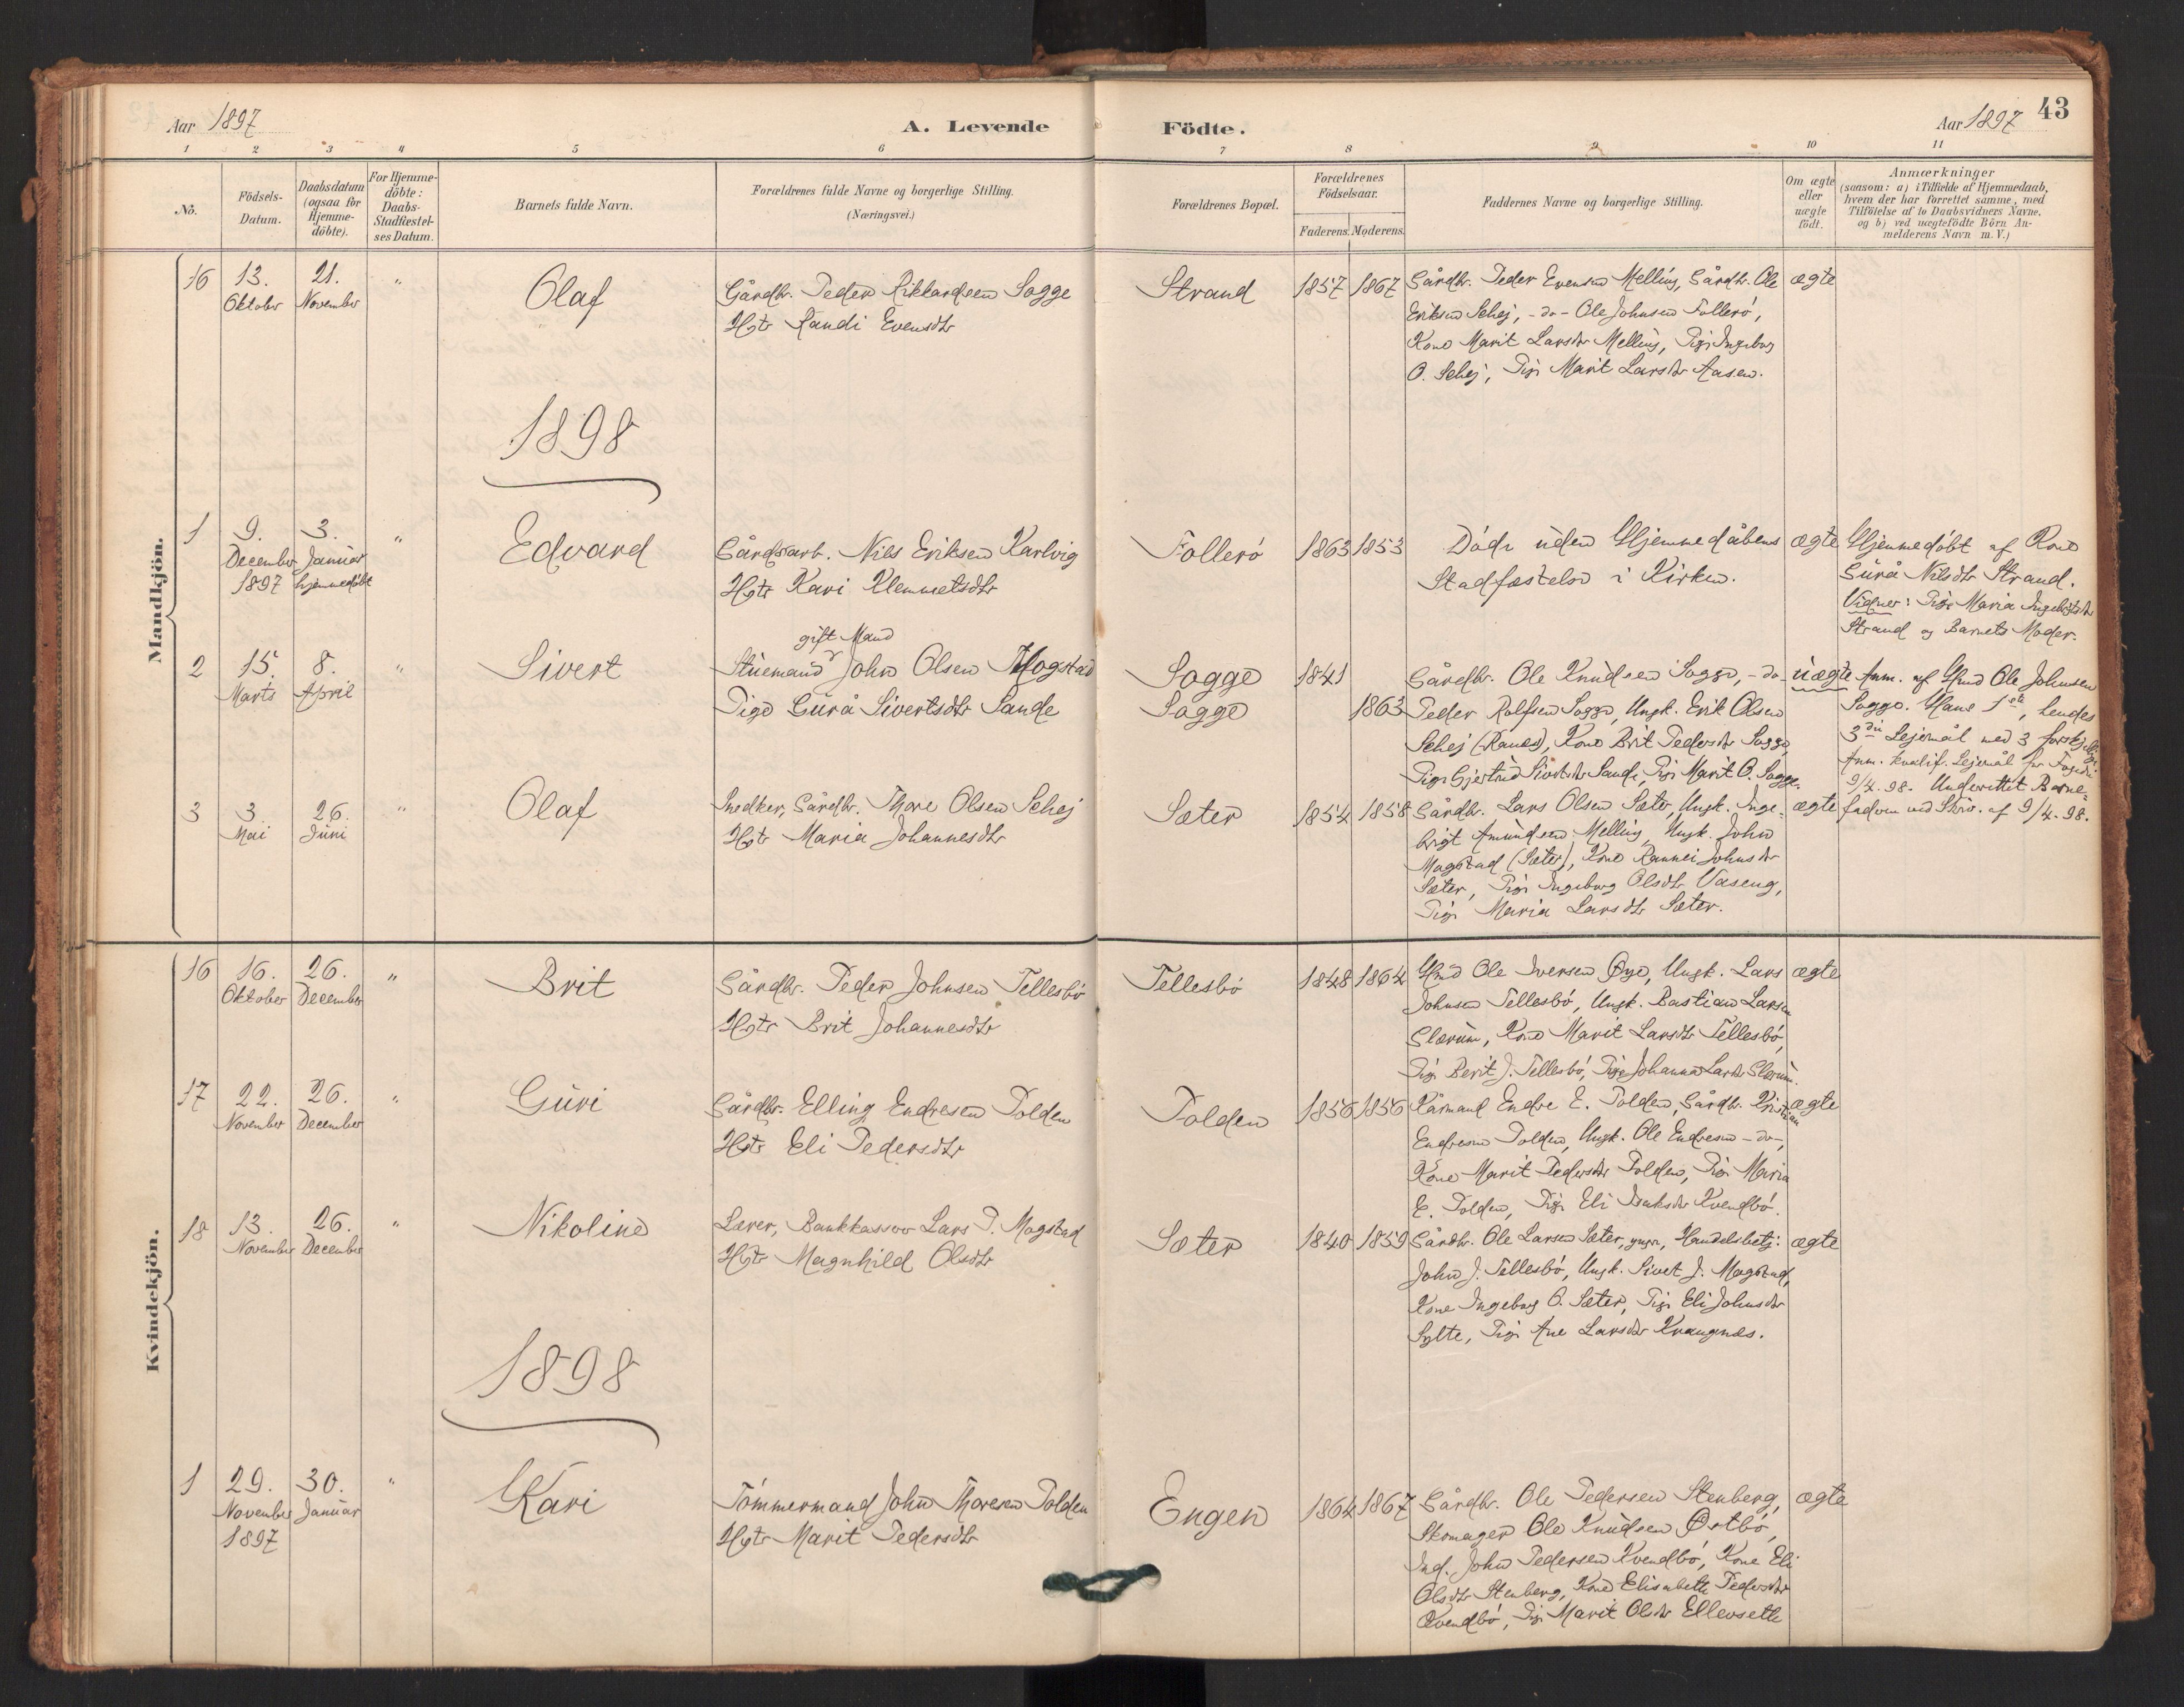 Aar 1897
A. Levende
Födte.
Aar 1897
43
1 2 3 4 5 6 7 8 9 10 11
No.
Födsels-
Datum.
Daabsdatum
(ogsaa for
Hjemme-
döbte).
For Hjemme-
döbte:
Daabs-
Stadfæstel-
ses Datum.
Barnets fulde Navn.
Forældrenes fulde Navne og borgerlige Stilling.
(Næringsvei.)
Forældrenes Bopæl.
Forældrenes
Födselsaar.
Faderens. Moderens.
Faddernes Navne og borgerlige Stilling.
Om ægte
eller
uægte
födt.
Anmærkninger
(saasom: a) i Tilfælde af Hjemmedaab,
hvem der har forrettet samme, med
Tilföielse af to Daabsvidners Navne,
og b) ved uægtefödte Börn An-
melderens Navn m. V.)
Mandkjön.
16
13.
Oktober
21.
November
"
Olaf
Gårdbr. Peder Rikkardsen Sogge
Hstr Randi Evensdtr
Strand
1857 1867
Gårdbr. Peder Evensen Melling, Gårdbr. Ole
Eriksen Sehej, -do- Ole Johnsen Follerö,
Kone Marit Larsdtr Melling, Pige Ingeborg
O. Sehej, Pige Marit Larsdtr Aasen.
ægte
1898
1
9.
December
1897
3.
Januar
hjemmedöbt
"
Edvard
Gårdsarb. Nils Eriksen Karlvig
Hstr Kari Klemmetsdtr
Follerö
1863 1853
Döde uden Hjemmedåbens
Stadfæstelse i Kirken.
ægte
Hjemmedöbt af Kone
Gurå Nilsdtr Strand.
Vidner: Pige Maria Ingebrigtsdtr
Strand og Barnets Moder.
2
15.
Marts
8.
April
"
Sivert
gift Mand
Stuemand John Olsen Mogstad
Pige Gurå Sivertsdtr Sande
Sogge
Sogge
1841
1863
Gårdbr. Ole Knudsen Sogge, -do-
Peder Rolfsen Sogge, Ungk. Erik Olsen
Sehej (Ranes), Kone Brit Pedersdtr Sogge,
Pige Gjertrud Sivertsdtr Sande, Pige Marit O. Sogge.
uægte
Anm. af Hmd Ole Johnsen
Sogge. Hans 1ste, hendes
3die Lejemål med 3 forskjellige.
Anm. kvalif. Lejemål for Fogden
9/4. 98. Underrettet Barne-
faderen ved Skriv. af 9/4. 98.
3
3.
Mai
26.
Juni
"
Olaf
Snedker, Gårdbr. Thore Olsen Sehej
Hstr Maria Johannesdtr
Sæter
1854 1858
Gårdbr. Lars Olsen Sæter, Ungk. Inge-
brigt Amundsen Melling, Ungk. John
Magstad (Sæter), Kone Rannei Johnsdtr
Sæter, Pige Ingeborg Olsdtr Vaseng,
Pige Maria Larsdtr Sæter.
ægte
Kvindekjön.
16
16.
Oktober
26.
December
"
Brit
Gårdbr. Peder Johnsen Tellesbö
Hstr Brit Johannesdtr
Tellesbö
1848 1864
Hmd Ole Iversen Öye, Ungk. Lars
Johnsen Tellesbö, Ungk. Bastian Larsen
Glærum, Kone Marit Larsdtr Tellesbö,
Pige Berit J. Tellesbö, Pige Johanna Larsdtr Glærum.
ægte
17
22.
November
26.
December
"
Guri
Gårdbr. Elling Endresen Polden
Hstr Eli Pedersdtr
Polden
1856 1856
Kårmand Endre E. Polden, Gårdbr. Kristian
Endresen Polden, Ungk. Ole Endresen -do-,
Kone Marit Pedersdtr Polden, Pige Maria
E. Polden, Pige Eli Isaksdtr Kvendbö.
ægte
18
13.
November
26.
December
"
Nikoline
Lærer, Bankkasserer Lars P. Magstad
Hstr Magnhild Olsdtr
Sæter
1840 1859
Gårdbr. Ole Larsen Sæter, yngre, Handelsbetj.
John J. Tellesbö, Ungk. Sivert J. Magstad,
Kone Ingeborg O. Sæter, Pige Eli Johnsdtr
Sylte, Pige Ane Larsdtr Krangnes.
ægte
1898
1
29.
November
1897
30.
Januar
"
Kari
Tömmermand John Thoresen Polden
Hstr Marit Pedersdtr
Engen
1864 1867
Gårdbr. Ole Pedersen Stenberg,
Skomager Ole Knudsen Östbö,
Ind. John Pedersen Kvendbö, Kone Eli
Olsdtr Stenberg, Kone Elisabeth Pedersdtr
Kvendbö, Pige Marit Olsdtr Ellevseth
ægte